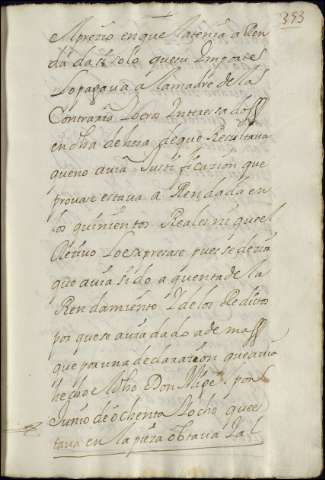 353
el preçio en que la tenia a Ren
dada solo que su Importe
lo pagaua a la madre de la
Contraria Y otros Interesados
en dha deheza de que Resultaua
que no auia Justificazion que
prouase estaua a Rendada en
los quinientos Reales ni que el
Recibo lo expresase pues se decia
que auia sido a quenta de la
Rendamiento Y de los Reditos
por que se auia dado ademas
que por una declarazion que auia
hecho el dho Don Migel por
Junio de ochenta Y ocho que es
taua en la pieza obraua Y al